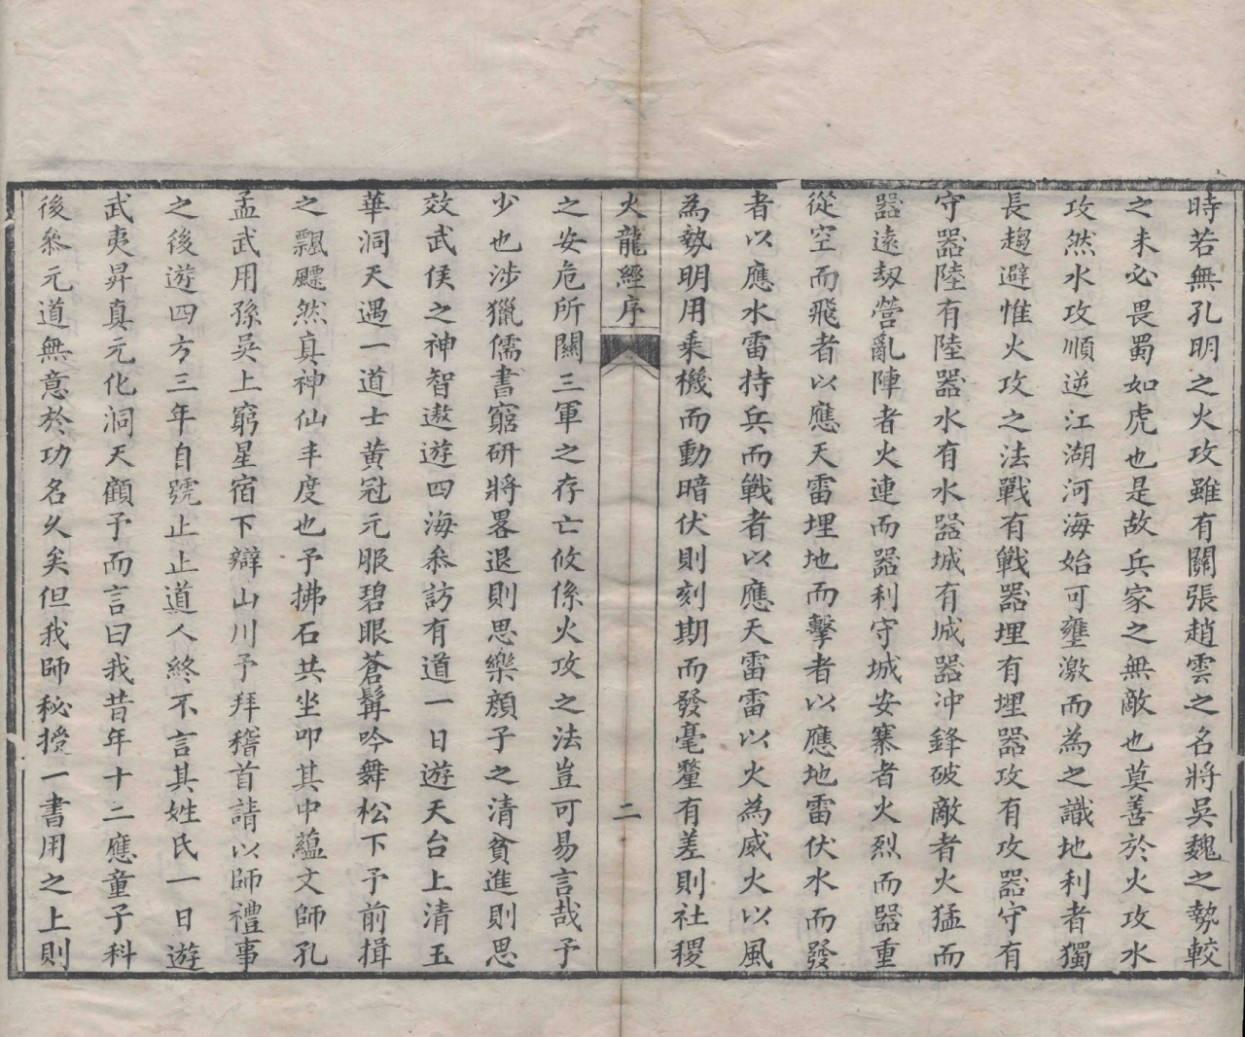 時若無孔明之火攻雖有關張趙雲之名將吳魏之勢較
之未必畏蜀如虎也是故兵家之無敵也莫善於火攻水
攻然水攻順逆江湖河海始可壅激而為之識地利者獨
長趨避惟火攻之法戰有戰器埋有埋器攻有攻器守有
守器陸有陸器水有水器城有城器冲鋒破敵者火猛而
器遠刼營亂陣者火連而器利守城安寨者火烈而器重
從空而飛者以應天雷埋地而擊者以應地雷伏水而發
者以應水雷持兵而戰者以應天雷雷以火為威火以風
為勢明用乘機而動暗伏則刻期而發毫釐有差則社稷
火龍經序 二
之安危所關三軍之存亡攸係火攻之法豈可易言哉予
少也涉獵儒書窮研將畧退則思樂顏子之清貧進則思
效武侯之神智遨遊四海叅訪有道一日遊天台上清玉
華洞天遇一道士黃冠元服碧眼蒼髯吟舞松下予前揖
之飄飄然真神仙丰度也予拂石共坐叩其中蘊文師孔
孟武用孫吳上窮星宿下辯山川予拜稽首請以師禮事
之後遊四方三年自號止止道人終不言其姓氏一日遊
武夷昇真元化洞天顧予而言曰我昔年十二應童子科
後叅元道無意於功名久矣但我師秘授一書用之上則